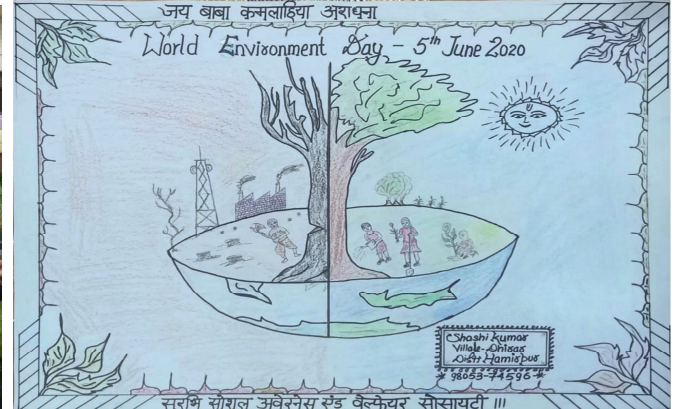 जय बाबा कमलाहिया अराधना
World Environment Day - 5th June 2020
Shashi Kumar
Village-Dhisar
Distt Hamirpur
* 98053-74596 *
सुरभि सोशल अवेरनेस एंड वैल्फेयर सोसायटी !!!